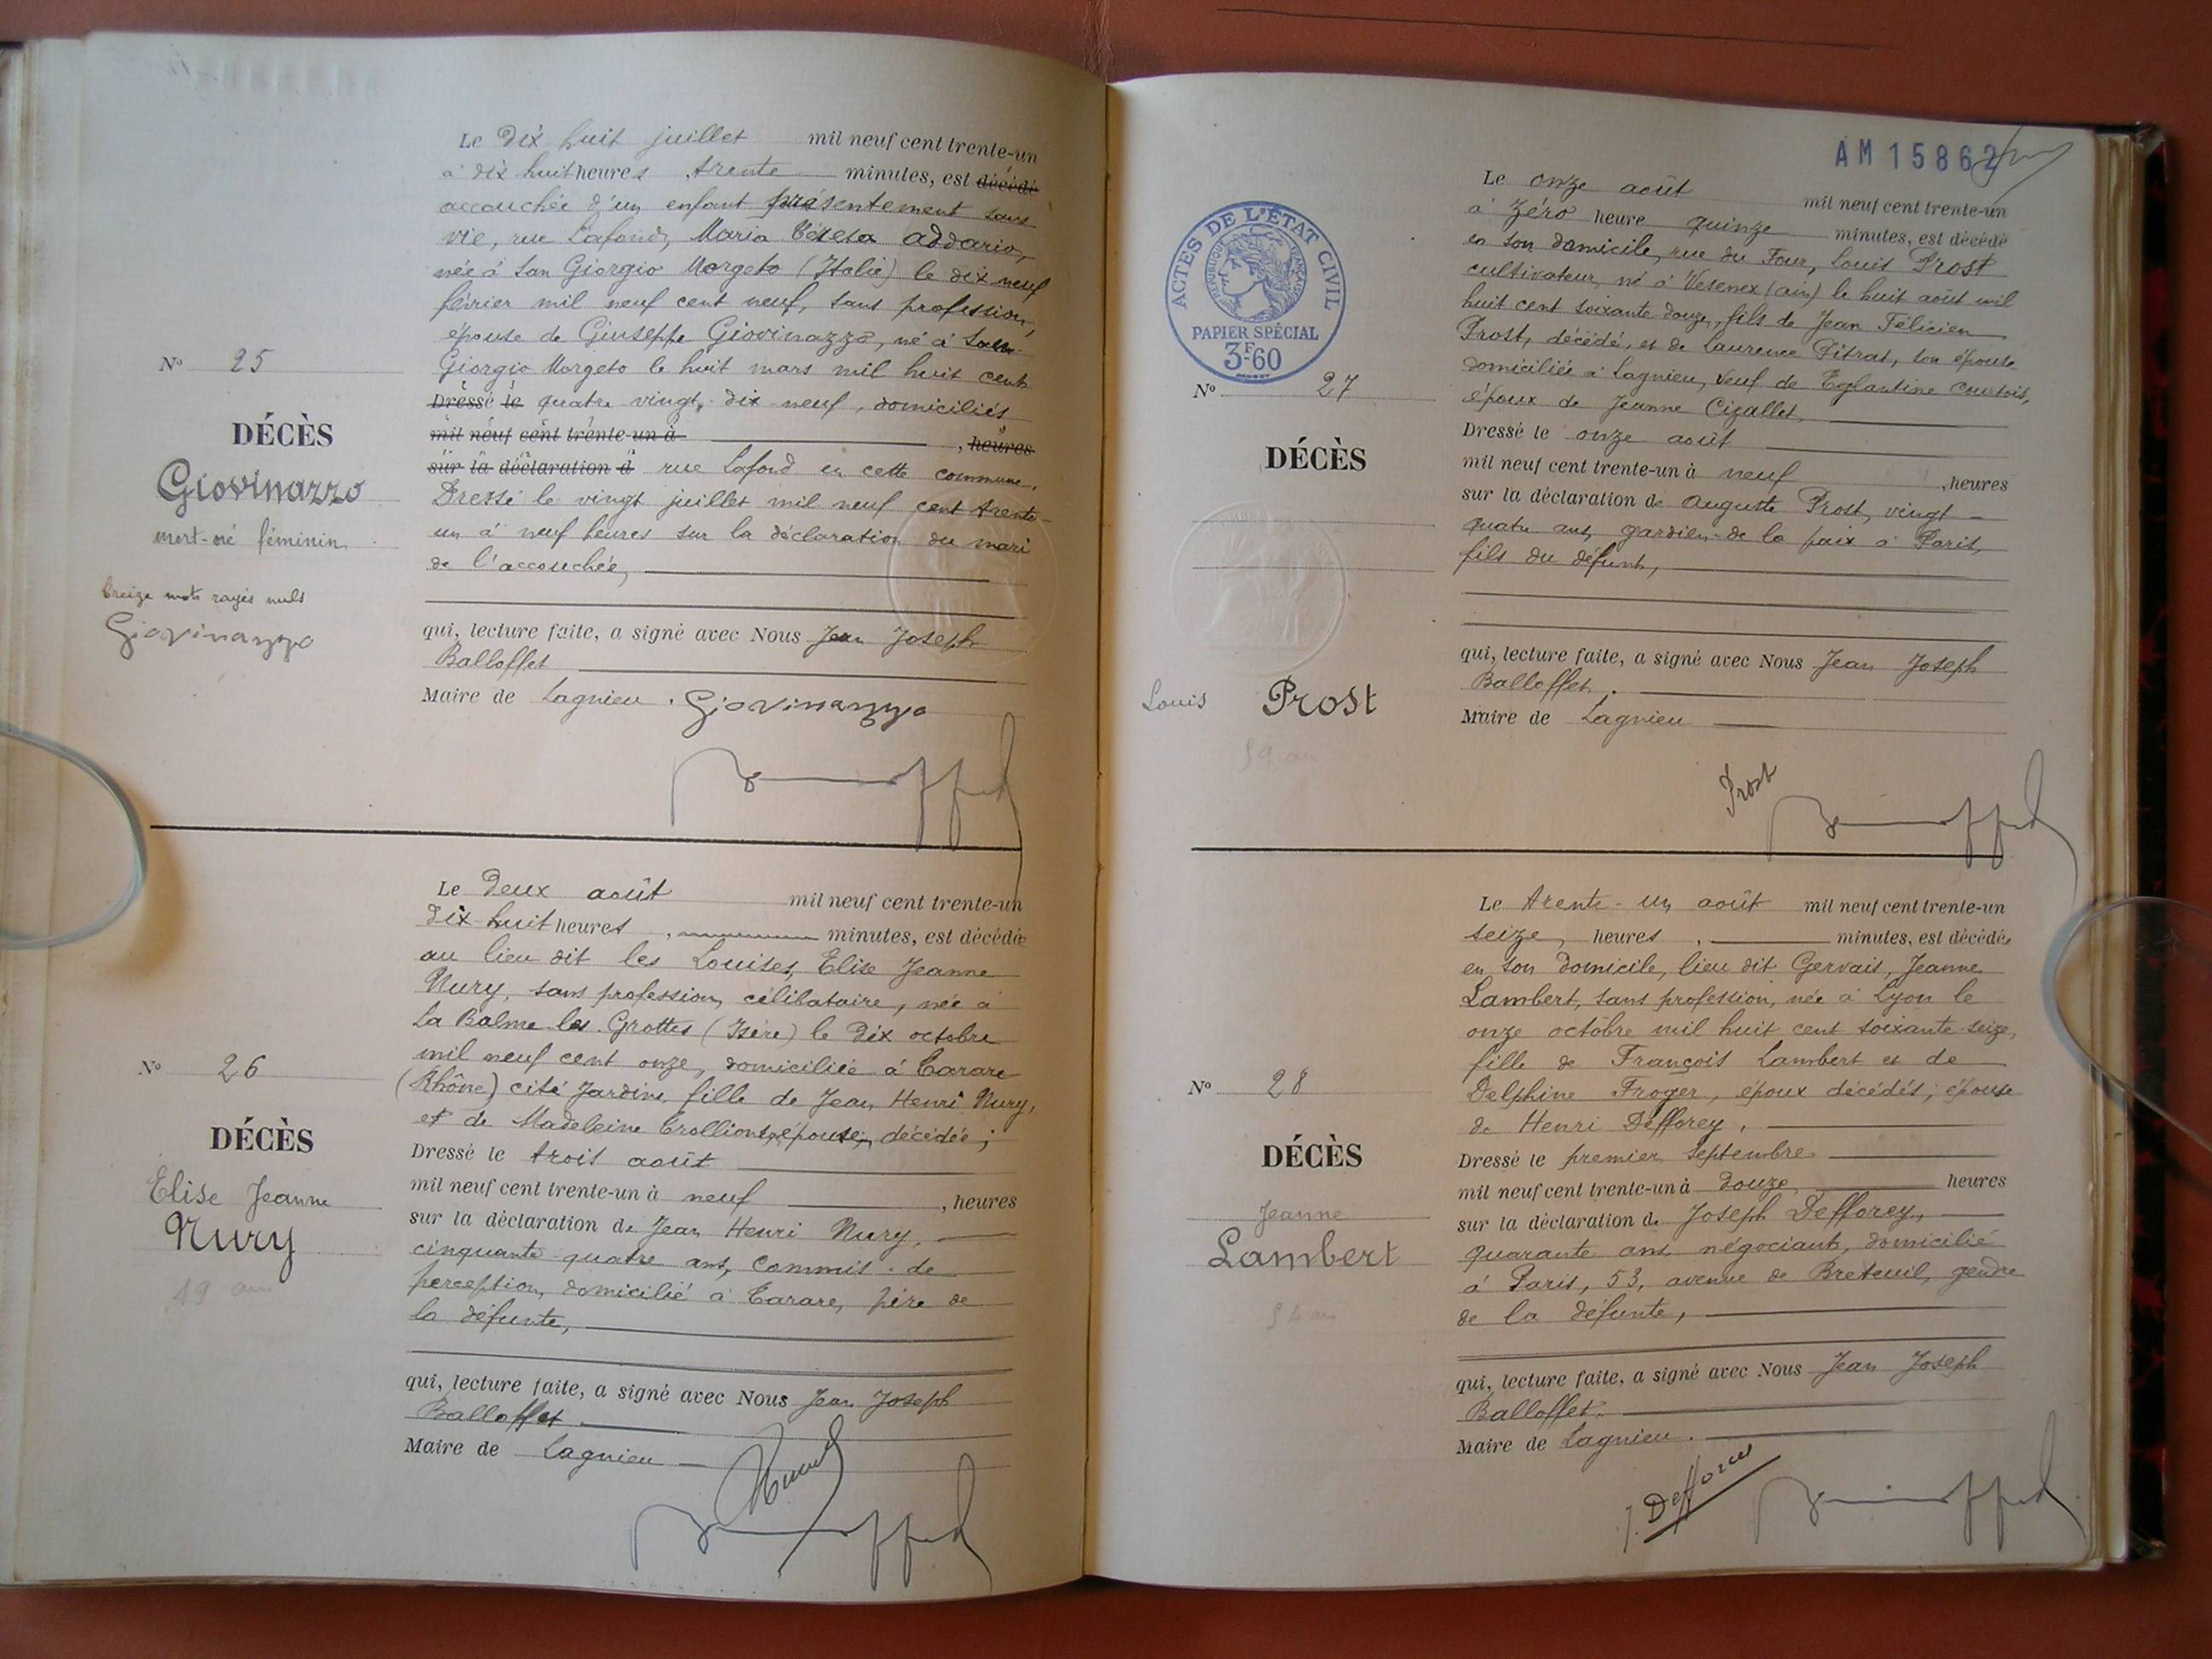 Le Dix huit juillet mil neuf cent trente-un
à dix huit heures trente minutes, est décédé
accouchée d'un enfant présentement sans
vie, rue Lafond, Maria Teresa Addario,
née à San Giorgio Morgeto (Italie) le dix neuf
février mil neuf cent neuf, sans profession,
épouse de Giuseppe Giovinazzo, né à San
Giorgio Morgeto le huit mars mil huit cent
Dressé le quatre vingt, dix neuf, domiciliés
mil neuf cent trente-un à , heures
sur la déclaration d rue Lafond en cette commune.
Dressé le vingt juillet mil neuf cent trente-
un à neuf heures sur la déclaration du mari
de l'accouchée,
qui, lecture faite, a signé avec Nous Jean Joseph
Balloffet
Maire de Lagnieu . Giovinazzo
N° 25
DÉCÈS
Giovinazzo
mort-né féminin
treize mots rayés nuls
Giovinazzo
Le Deux août mil neuf cent trente-un
Dix-huit heures , minutes, est décédée
au lieu dit les Louises, Elise Jeanne
Nury, sans profession, célibataire, née à
La Balme les Grottes (Isère) le Dix octobre
mil neuf cent onze, domiciliée à Tarare
(Rhône) cité Jardine fille de Jean Henri Nury,
et de Madeleine Trolliont, épouse, décédée ;
Dressé le trois août
mil neuf cent trente-un à neuf , heures
sur la déclaration de Jean Henri Nury,
cinquante-quatre ans, commis de
perception, domicilié à Tarare, père de
la défunte,
qui, lecture faite, a signé avec Nous Jean Joseph
Balloffet
Maire de Lagnieu
N° 26
DÉCÈS
Elise Jeanne
Nury
19 ans
AM 15862
ACTES DE L'ÉTAT CIVIL
RÉPUBLIQUE FRANÇAISE
PAPIER SPÉCIAL
3F60
Le onze août mil neuf cent trente-un
à Zéro heure quinze minutes, est décédé
en son domicile, rue du Four, Louis Prost
cultivateur, né à Vesenex (ain) le huit août mil
huit cent soixante-douze, fils de Jean Félicien
Prost, décédé, et de Laurence Pitrat, son épouse
domiciliée à Lagnieu, veuf de Eglantine Courtois,
époux de Jeanne Cizallet,
Dressé le onze août
mil neuf cent trente-un à neuf , heures
sur la déclaration de Auguste Prost, vingt-
quatre ans, gardien de la paix à Paris,
fils du défunt,
qui, lecture faite, a signé avec Nous Jean Joseph
Balloffet .
Maire de Lagnieu
Prost
N° 27
DÉCÈS
Louis Prost
59 ans
Le trente-un août mil neuf cent trente-un
seize heures , minutes, est décédée
en son domicile, lieu dit Gervais, Jeanne
Lambert, sans profession, née à Lyon le
onze octobre mil huit cent soixante-seize,
fille de François Lambert et de
Delphine Froger, époux décédés ; épouse
de Henri Defforey .
Dressé le premier septembre
mil neuf cent trente-un à douze heures
sur la déclaration de Joseph Defforey,
quarante ans, négociant, domicilié
à Paris, 53, avenue de Breteuil, gendre
de la défunte,
qui, lecture faite, a signé avec Nous Jean Joseph
Balloffet.
Maire de Lagnieu .
J. Defforey
N° 28
DÉCÈS
Jeanne
Lambert
54 ans